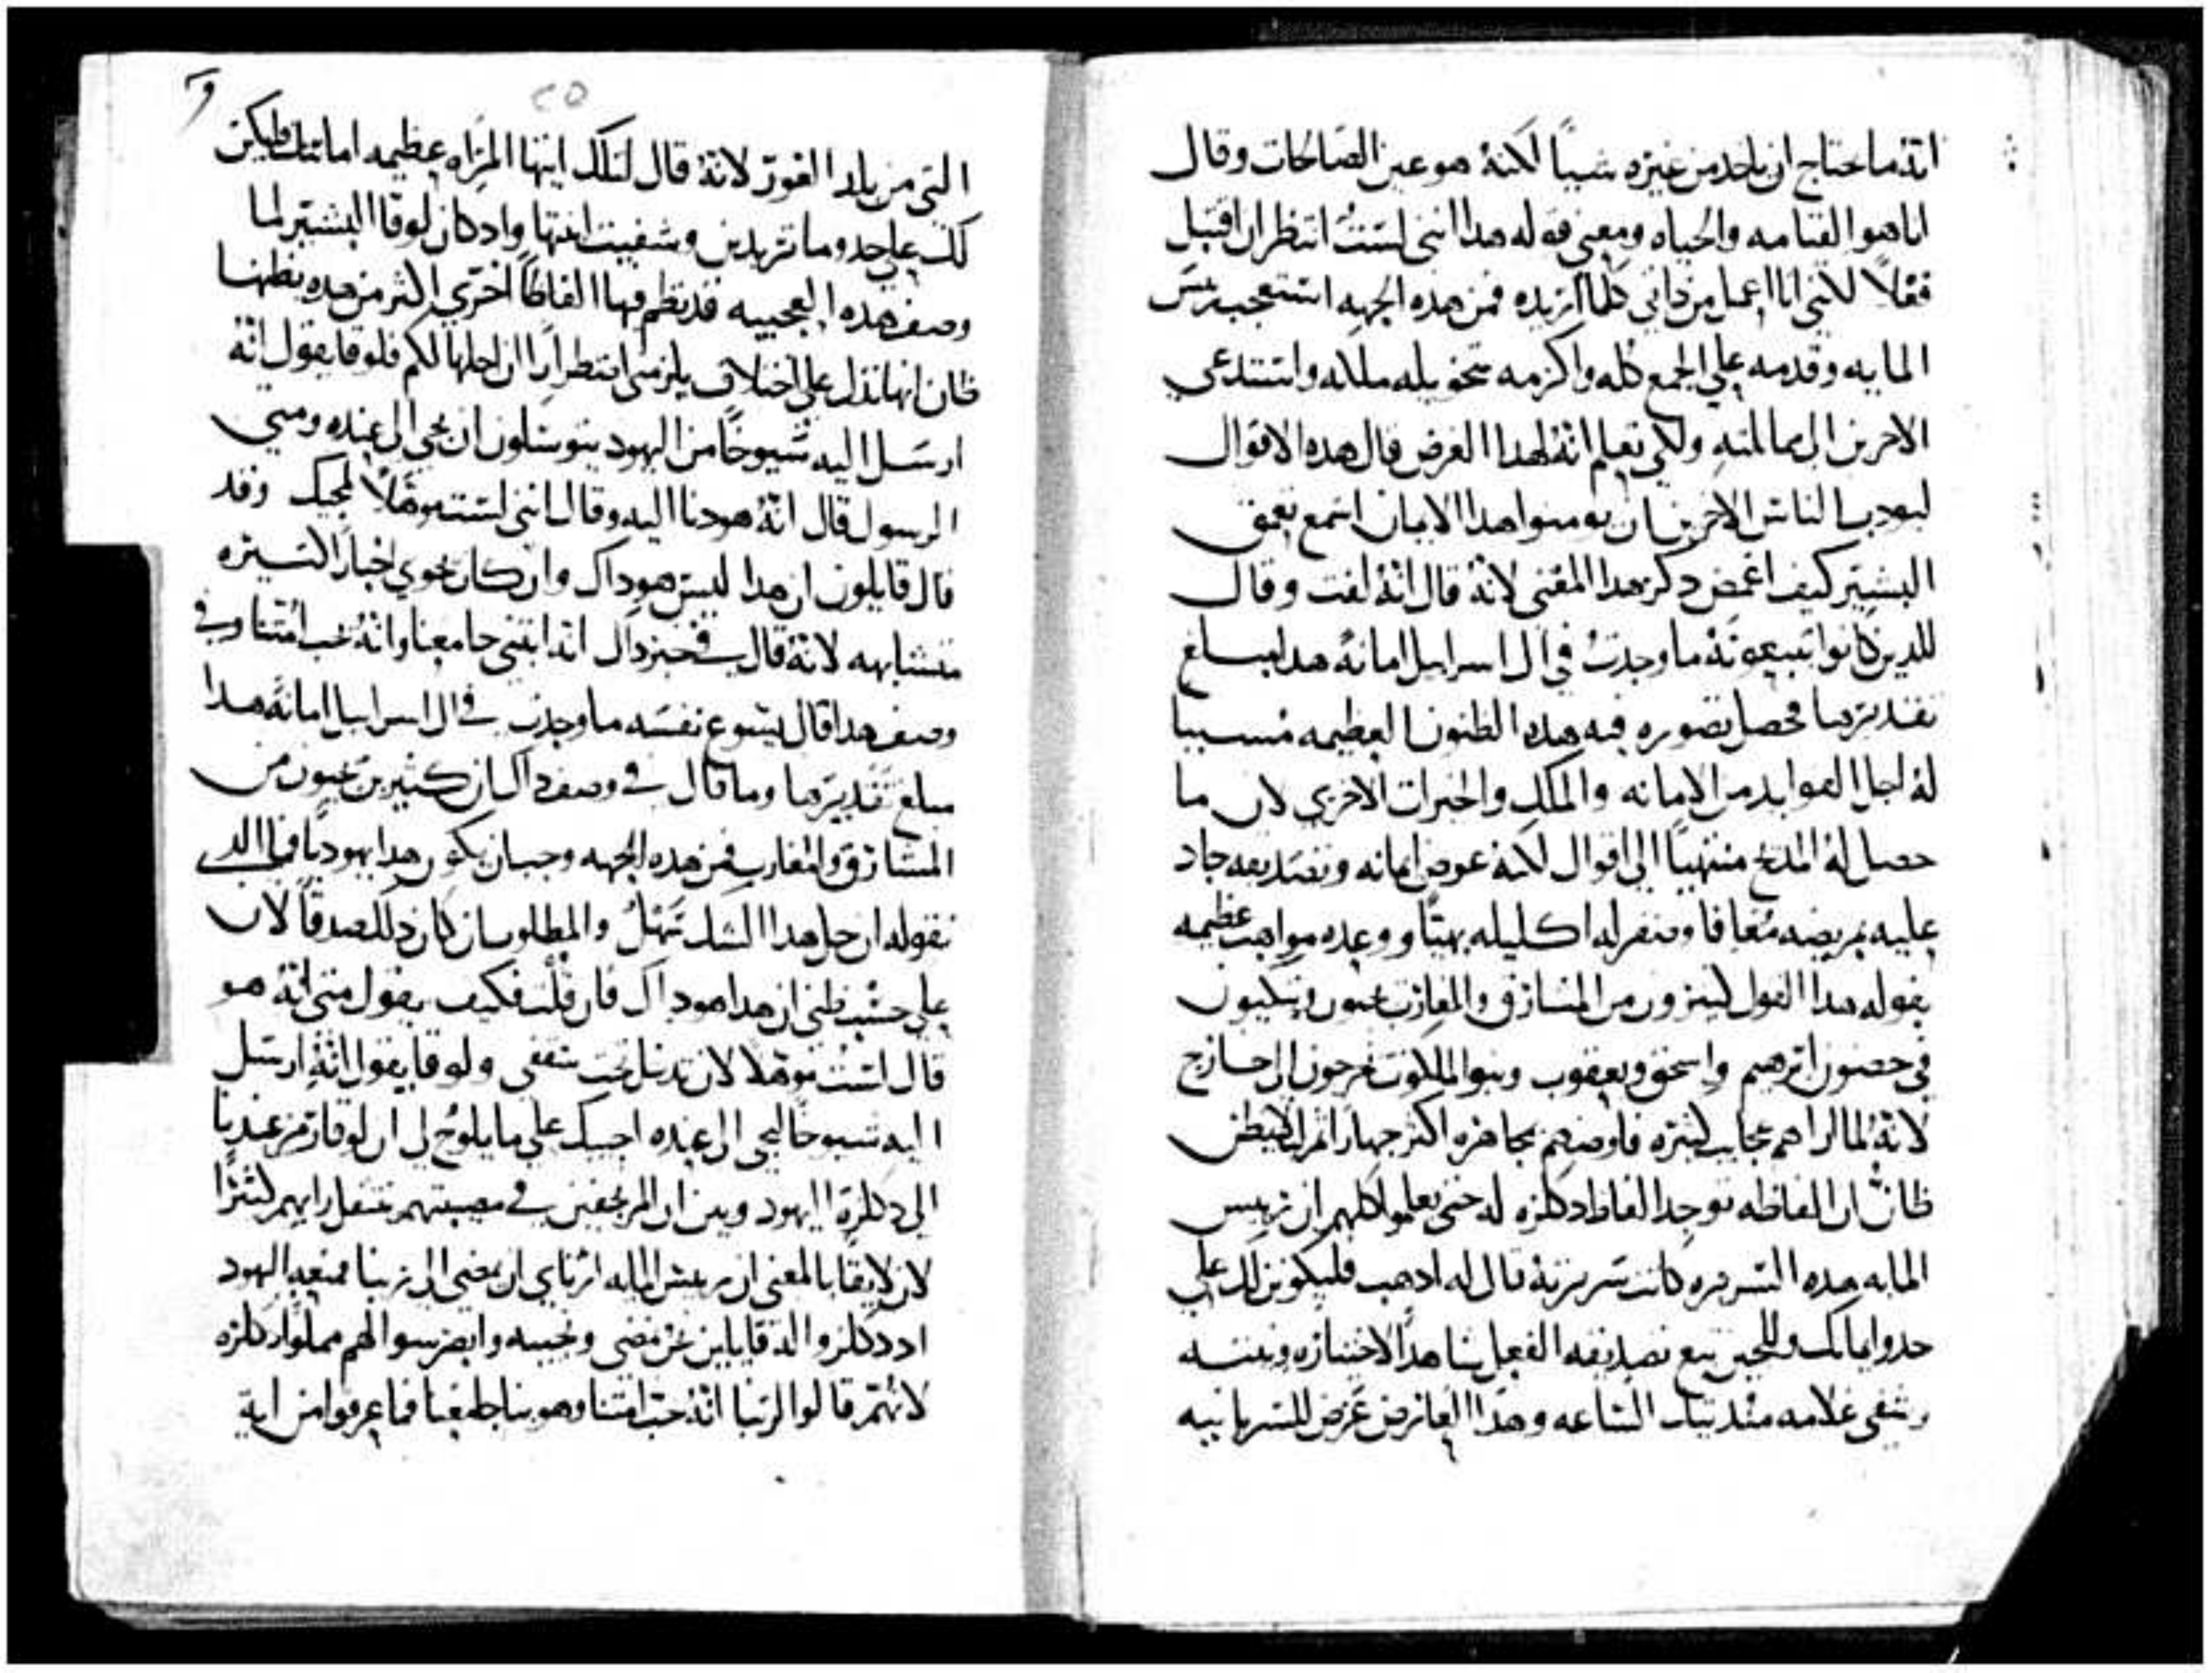 انه ما يحتاج ان ياخد من غيره شيياً لكنه هو عين الصالحات وقال
انا هو القيامه والحياه ومعني قوله هدا انني لست انتظر ان اقتبل
فعلاً لانني انا اعمل من داتي كلما اريده فمن هده الجهه استعجب ريس
المايه وقدمه علي الجمع كله واكرمه بتخويله ملكه واستدعي
الاخرين الي مماثلته ولكي تعلم انه لهدا الغرض قال هده الاقوال
ليودب الناس الاخرين ان يومنوا هدا الايمان اسمع تعمق
البشير كيف اغمض دكر هدا المعني لانه قال انه لفت وقال
للدين كانوا يتبعونه ما وجدت في ال اسراييل امانة هدا مبلغ
تقديرها فحصل تصوره فيه هده الظنون العظيمه مسببا
له اجل الفوايد من الامانه والملك والخيرات الاخري لان ما
حصل له المدح منتهياً الي اقوال لكنه عوض ايمانه وتصديقه جاد
عليه بمريضه معافا وضفر له اكليله بهيا ووعده مواهب عظيمه
بقوله هدا القول كثيرون من المشارق والمغارب يجيون ويتكيون
في حضون ابرهيم واسحق ويعقوب وبنوا الملكوت يخرجون الي خارج
لانه لما اراهم عجايب كثيره فاوضهم مجاهره اكثر جهارا ثم لكيلا يظن
ظان ان الفاظه توجد الفاظ دكره له حتي يعلموا كلهم ان ريس
المايه هده السريره كانت سريرته قال له ادهب فليكونن لك علي
حدو ايمانك وللحين تبع تصديقه الفعل شاهداً لاختياره ونيته
وشفي غلامه مند تيك الساعه وهدا العارض عرض للسريانيه
٢٥
التي من بلد الفور لانه قال لتلك ايتها المراه عظيمه امانتك فليكن
لك علي حدو ما تريدين وشفيت ابنتها واد كان لوقا البشير لما
وصف هده العجيبه قد نظم فيها الفاظاً اخري اكثر من هده يظنها
ظان انها تدل علي اختلاف يلزمني اضطراراً ان احلها لكم فلوقا يقول انه
ارسل اليه شيوخاً من اليهود يتوسلون ان يجي الي عنده ومتي
الرسول قال انه هو دنا اليه وقال انني لست موهلاً لمجيك وقد
قال قايلون ان هدا ليس هو داك وان كان يحوي اخبار السيره
متشابهه لانه قال في خبر داك انه ابتني جامعنا وانه يحب امتنا وفي
وصف هدا قال يسوع نفسه ما وجدت في ال اسراييل امانة هدا
مبلغ تقديرها وما قال في وصف داك ان كثيرين يجيون من
المشارق والمغارب فمن هده الجهه وجب ان يكون هدا يهودياً فما الدي
نقوله ان حل هدا الشك سهل والمطلوب ان كان دلك صدقاً لان
علي حسب ظني ان هدا هو داك فان قلت فكيف يقول متي انه هو
قال لست موهلا لان تدخل تحت سقفي ولوقا يقول انه ارسل
اليه شيوخاً ليجي الي عنده اجيبك علي ما يلوح لي ان لوقا رمز عندنا
الي دكره اليهود وبين ان المرتجفين في مصيبتهم تتنقل ارايهم كثيرا
لان لايقاً بالمعني ان ريس المايه ارتاي ان يمضي الي ربنا فمنعه اليهود
اد دكروا له قايلين نحن نمضي ونجيبه وابصر سوالهم مملوا دكره
لانهم قالوا لربنا انه يحب امتنا وهو بنا جامعنا فما عرفوا من اية